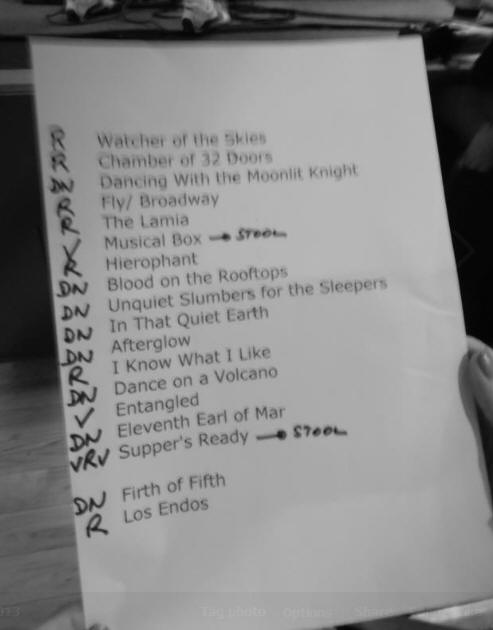 R Watcher of the Skies
R Chamber of 32 Doors
DN Dancing With the Moonlit Knight
R Fly/ Broadway
R The Lamia
V Musical Box → STOOL
R Hierophant
DN Blood on the Rooftops
DN Unquiet Slumbers for the Sleepers
DN In That Quiet Earth
DN Afterglow
R I Know What I Like
DN Dance on a Volcano
V Entangled
DN Eleventh Earl of Mar
VRV Supper's Ready → STOOL
DN Firth of Fifth
R Los Endos
Tag photo Options Share